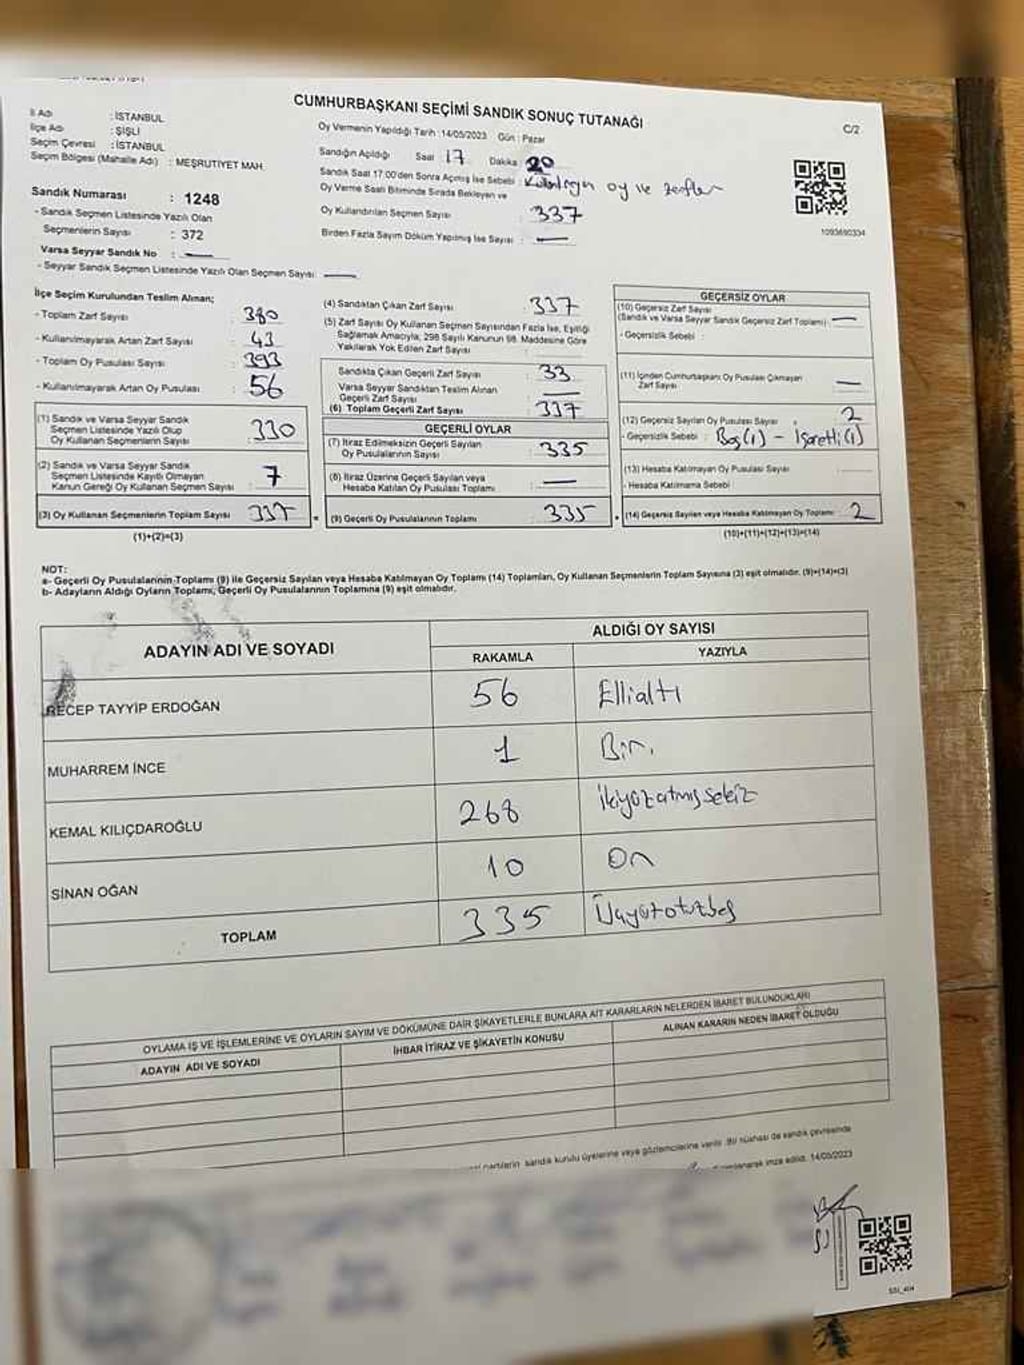 CUMHURBAŞKANI SEÇİMİ SANDIK SONUÇ TUTANAĞI
C/2
İl Adı : İSTANBUL
İlçe Adı : ŞİŞLİ
Seçim Çevresi : İSTANBUL
Seçim Bölgesi (Mahalle Adı) : MEŞRUTİYET MAH.
Sandık Numarası : 1248
- Sandık Seçmen Listesinde Yazılı Olan
Seçmenlerin Sayısı : 372
Varsa Seyyar Sandık No : —
- Seyyar Sandık Seçmen Listesinde Yazılı Olan Seçmen Sayısı: —
Oy Vermenin Yapıldığı Tarih :14/05/2023 Gün : Pazar
Sandığın Açıldığı Saat 17 Dakika 20
Sandık Saat 17:00'den Sonra Açılmış İse Sebebi : Kullanılmayan oy ile zarflar
Oy Verme Saati Bitiminde Sırada Bekleyen ve
Oy Kullandırılan Seçmen Sayısı : 337
Birden Fazla Sayım Döküm Yapılmış İse Sayısı : —
1093690334
İlçe Seçim Kurulundan Teslim Alınan;
- Toplam Zarf Sayısı : 380
- Kullanılmayarak Artan Zarf Sayısı : 43
- Toplam Oy Pusulası Sayısı : 393
- Kullanılmayarak Artan Oy Pusulası : 56
(1) Sandık ve Varsa Seyyar Sandık
Seçmen Listesinde Yazılı Olup
Oy Kullanan Seçmenlerin Sayısı : 330
(2) Sandık ve Varsa Seyyar Sandık
Seçmen Listesinde Kayıtlı Olmayan
Kanun Gereği Oy Kullanan Seçmen Sayısı : 7
(3) Oy Kullanan Seçmenlerin Toplam Sayısı : 337
(1)+(2)=(3)
(4) Sandıktan Çıkan Zarf Sayısı : 337
(5) Zarf Sayısı Oy Kullanan Seçmen Sayısından Fazla İse, Eşitliği
Sağlamak Amacıyla; 298 Sayılı Kanunun 98. Maddesine Göre
Yakılarak Yok Edilen Zarf Sayısı :
Sandıkta Çıkan Geçerli Zarf Sayısı : 33
Varsa Seyyar Sandıktan Teslim Alınan
Geçerli Zarf Sayısı : —
(6) Toplam Geçerli Zarf Sayısı : 337
GEÇERLİ OYLAR
(7) İtiraz Edilmeksizin Geçerli Sayılan
Oy Pusulalarının Sayısı : 335
(8) İtiraz Üzerine Geçerli Sayılan veya
Hesaba Katılan Oy Pusulası Toplamı : —
= (9) Geçerli Oy Pusulalarının Toplamı : 335
GEÇERSİZ OYLAR
(10) Geçersiz Zarf Sayısı
(Sandık ve Varsa Seyyar Sandık Geçersiz Zarf Toplamı) : —
- Geçersizlik Sebebi :
(11) İçinden Cumhurbaşkanı Oy Pusulası Çıkmayan
Zarf Sayısı : —
(12) Geçersiz Sayılan Oy Pusulası Sayısı : 2
- Geçersizlik Sebebi : Boş(1) - İşaretli(1)
(13) Hesaba Katılmayan Oy Pusulası Sayısı :
- Hesaba Katılmama Sebebi
+ (14) Geçersiz Sayılan veya Hesaba Katılmayan Oy Toplamı : 2
(10)+(11)+(12)+(13)=(14)
NOT:
a- Geçerli Oy Pusulalarının Toplamı (9) ile Geçersiz Sayılan veya Hesaba Katılmayan Oy Toplamı (14) Toplamları, Oy Kullanan Seçmenlerin Toplam Sayısına (3) eşit olmalıdır. (9)+(14)=(3)
b- Adayların Aldığı Oyların Toplamı, Geçerli Oy Pusulalarının Toplamına (9) eşit olmalıdır.
ADAYIN ADI VE SOYADI ALDIĞI OY SAYISI
RAKAMLA YAZIYLA
RECEP TAYYİP ERDOĞAN 56 Ellialtı
MUHARREM İNCE 1 Bir.
KEMAL KILIÇDAROĞLU 268 İkiyüzatmışsekiz
SİNAN OĞAN 10 On
TOPLAM 335 Üçyüzotuzbeş
OYLAMA İŞ VE İŞLEMLERİNE VE OYLARIN SAYIM VE DÖKÜMÜNE DAİR ŞİKAYETLERLE BUNLARA AİT KARARLARIN NELERDEN İBARET BULUNDUKLARI
ADAYIN ADI VE SOYADI İHBAR İTİRAZ VE ŞİKAYETİN KONUSU ALINAN KARARIN NEDEN İBARET OLDUĞU
partilerin sandık kurulu üyelerine veya gözlemcilerine verilir. Bir nüshası da sandık çevresinde
imza edildi. 14/05/2023